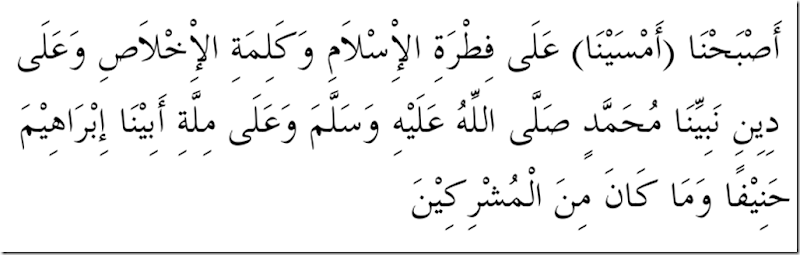 أَصْبَحْنَا (أَمْسَيْنَا) عَلَى فِطْرَةِ الْإِسْلَامِ وَكَلِمَةِ الْإِخْلَاصِ وَعَلَى
دِيِنِ نَبِيِّنَا مُحَمَّدٍ صَلَّى اللَّهُ عَلَيْهِ وَسَلَّمَ وَعَلَى مِلَّةِ أَبِيْنَا إِبْرَاهِيْمَ
حَنِيْفًا وَمَا كَانَ مِنَ الْمُشْرِكِيْنَ